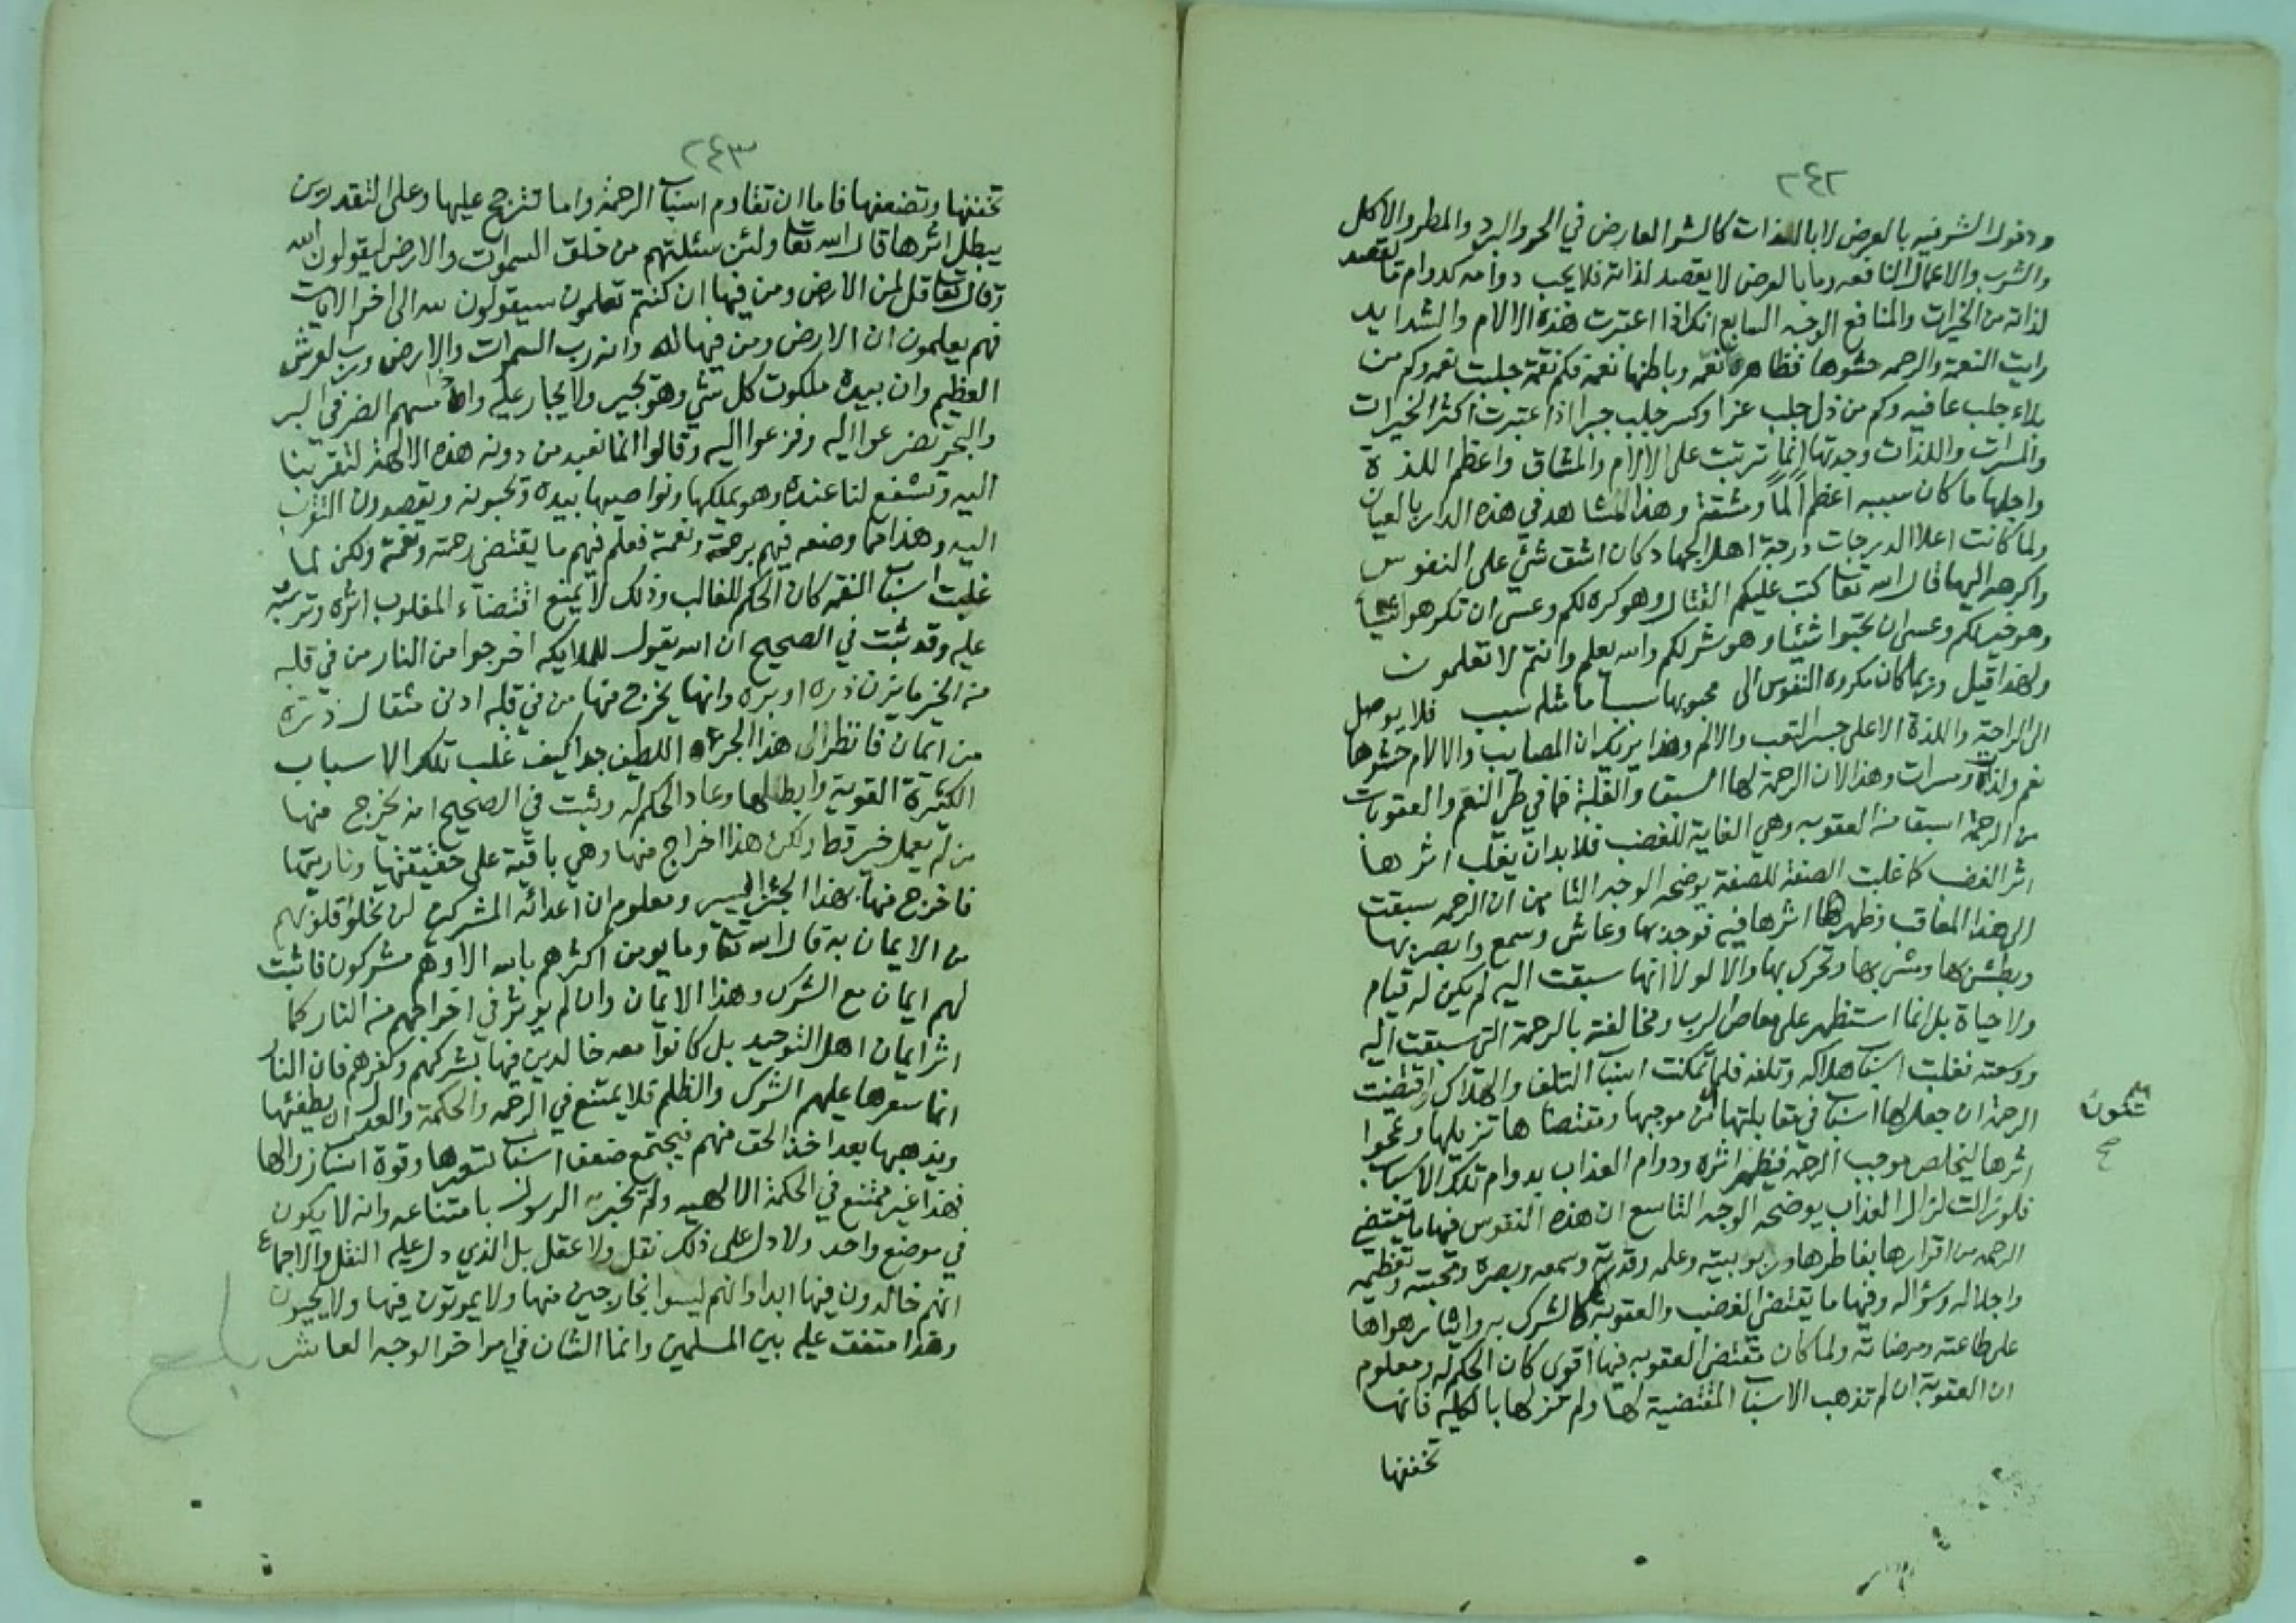 ٢٤٢
ودخول الشر فيه بالعرض لا بالذات كالشر العارض في الحر والبرد والمطر والاكل
والشرب والاعمال النافعه وما بالعرض لا يقصد لذاته فلا يجب دوامه كدوام ما يقصد
لذاته من الخيرات والمنافع الوجه السابع انك اذا اعتبرت هذه الالام والشدايد
رايت النعمة والرحمه حشوها فظاهرها نقمه وباطنها نعمه فكم نقمة جلبت نعمه وكم من
بلاء جلب عافيه وكم من ذل جلب عزا وكسر جلب جبرا اذا اعتبرت اكثر الخيرات
والمسرات واللذات وجدتها انما ترتبت على الالام والمشاق واعظم اللذة
واجلها ما كان سببه اعظم ألماً ومشقة وهذا المشاهد في هذه الدار بالعيان
ولما كانت اعلا الدرجات درجة اهل الجهاد كان اشق شيء على النفوس
واكرهه اليها قال الله تعا كتب عليكم القتال وهو كره لكم وعسى ان تكرهوا شيئا
وهو خير لكم وعسى ان تحبوا شيئا وهو شر لكم والله يعلم وانتم لا تعلمون
ولهذا قيل وربما كان مكروه النفوس الى محبوبها سببا ما مثله سبب فلا يوصل
الى الراحة واللذة الا على جسر التعب والالم وهذا يريك ان المصايب والالام حشوها
نعم ولذات ومسرات وهذا لان الرحمة لها السبق والغلبة فما في طي النقم والعقوبات
من الرحمة اسبق من العقوبه وهي الغاية للغضب فلا بد ان يغلب اثرها
اثر الغضب كما غلبت الصفة للصفة يوضحه الوجه الثامن ان الرحمه سبقت
الى هذا المعاقب وظهر اثرها فيه فوجد بها وعاش وسمع وابصر بها
وبطش بها ومشى بها وتحرك بها والا لولا انها سبقت اليه لم يكن له قيام
ولا حياة بل انما استظهر على معاصي الرب ومخالفته بالرحمة التي سبقت اليه
ووسعته فغلبت اسباب هلاكه وتلفه فلما تمكنت اسباب التلف والهلاك اقتضت
الرحمة ان جعل لها اسباب في مقابلتها من موجبها ومقتضاها تزيلها وتمحوا
تكون
اثرها ليخلص موجب الرحمة فيظهر اثره ودوام العذاب بدوام تلك الاسباب
فلو زالت لزال العذاب يوضحه الوجه التاسع ان هذه النفوس فيها ما يقتضي
الرحمه من اقرارها بفاطرها وربوبيته وعلمه وقدرته وسمعه وبصره ومحبته وتعظيمه
واجلاله وسؤاله وفيها ما يقتضي الغضب والعقوبة كالشرك به وايثار هواها
على طاعته ومرضاته ولما كان مقتضى العقوبه فيها اقوى كان الحكم له ومعلوم
ان العقوبة ان لم تذهب الاسباب المقتضية لها ولم تزلها بالكليه فانها
تخففها
٢٤٣
تخففها وتضعفها فاما ان تقاوم اسباب الرحمة واما تترجح عليها وعلى التقديرين
يبطل اثرها قال الله تعا ولئن سئلتهم من خلق السموات والارض ليقولون الله
وقال تعا قل لمن الارض ومن فيها ان كنتم تعلمون سيقولون لله الى اخر الايات
فهم يعلمون ان الارض ومن فيها لله وانه رب السموات والارض ورب العرش
العظيم وان بيده ملكوت كل شيء وهو يجير ولا يجار عليه واذا مسهم الضر في البر
والبحر تضرعوا اليه وفزعوا اليه وقالوا انما نعبد من دونه هذه الالهة لتقربنا
اليه وتشفع لنا عنده وهو يملكها ونواصيها بيده ويحبونه ويقصدون التقرب
اليه وهذا مما وضعه فيهم برحمته ونعمته فعلم فيهم ما يقتضي رحمته ونعمته ولكن لما
غلبت اسباب النقمه كان الحكم للغالب وذلك لا يمنع اقتضاء المغلوب اثره وترتبه
عليه وقد ثبت في الصحيح ان الله يقول للملايكه اخرجوا من النار من في قلبه
من الخير ما يزن ذره او بره وانها يخرج منها من في قلبه ادنى مثقال ذرة
من ايمان فانظر الى هذا الجزء اللطيف جدا كيف غلب تلك الاسباب
الكثيرة القوية وابطلها وعاد الحكم له وثبت في الصحيح انه يخرج منها
من لم يعمل خير قط ولكن هذا اخراج منها وهي باقية على حقيقتها وناريتها
فاخرج منها بهذا الجزء اليسير ومعلوم ان اعدائه المشركين لن تخلوا قلوبهم
من الايمان به قال الله تعا وما يومن اكثرهم بالله الا وهم مشركون فاثبت
لهم ايمان مع الشرك وهذا الايمان وان لم يوثر في اخراجهم من النار كما
اثر ايمان اهل التوحيد بل كانوا معه خالدين فيها بشركهم وكفرهم فان النار
انما سعرها عليهم الشرك والظلم فلا يمتنع في الرحمه والحكمة والعدل ان يطفئها
ويذهبها بعد اخذ الحق منهم فيجتمع ضعف اسباب تسعيرها وقوة اسباب زوالها
فهذا غير ممتنع في الحكمة الالهيه ولم يخبر به الرسول بامتناعه وانه لا يكون
في موضع واحد ولا دل على ذلك نقل ولا عقل بل الذي دل عليه النقل والاجماع
انهم خالدون فيها ابدا وانهم ليسوا بخارجين منها ولا يموتون فيها ولا يحيون
وهذا متفق عليه بين المسلمين وانما الشان في امر اخر الوجه العاشر
بلغ